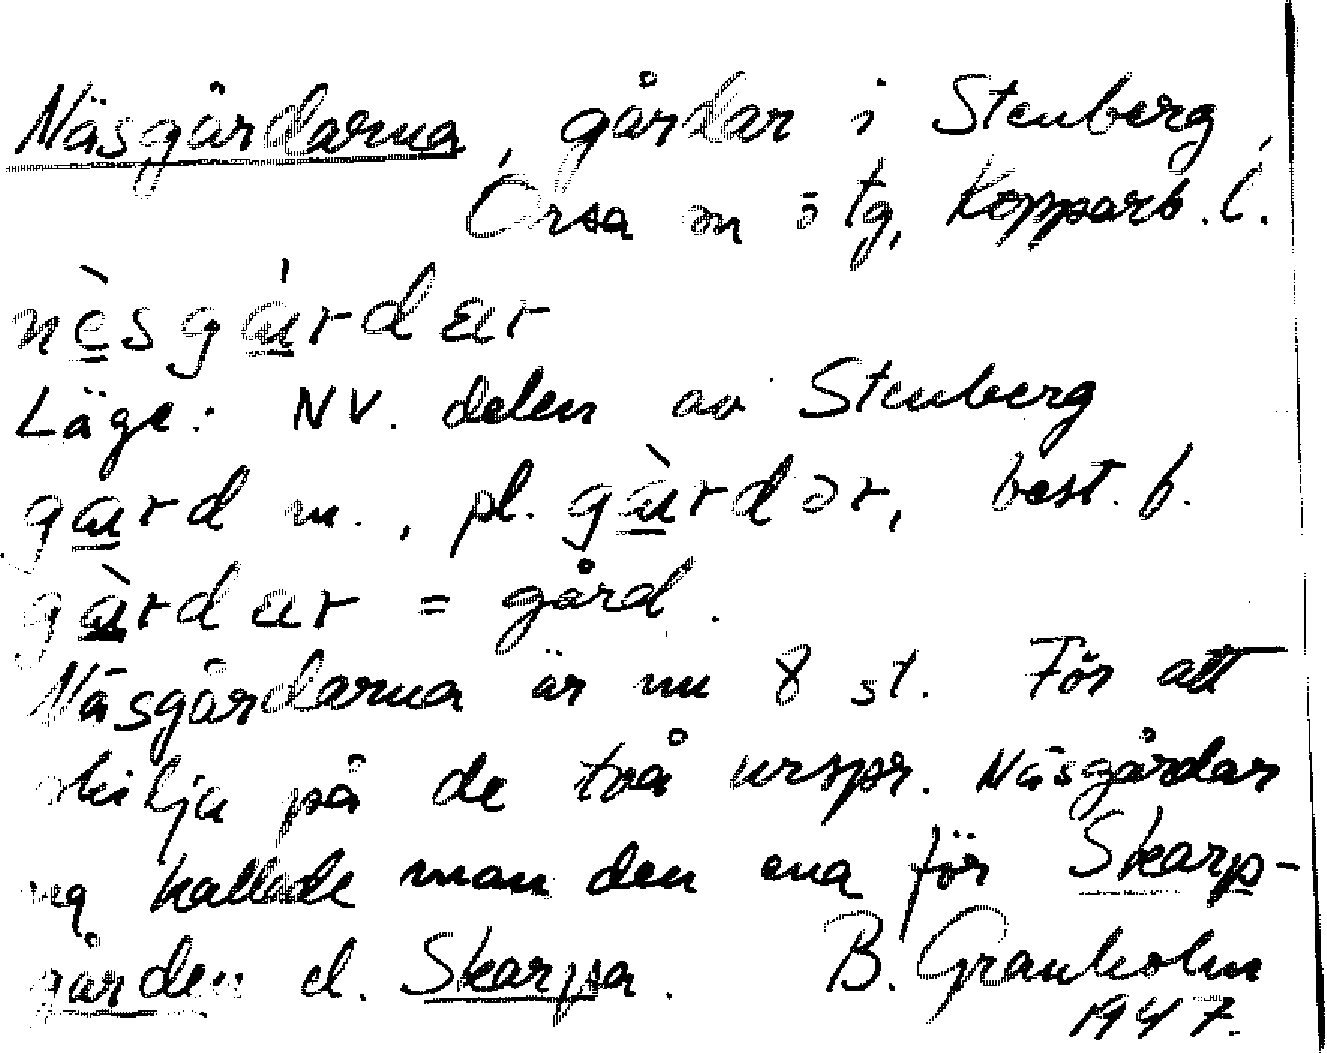 Näsgårdarna, gårdar i Stenberg,
Orsa sn o tg, Kopparb. l.
nèsgárdær
Läge: NV. delen av Stenberg
gard m., pl. gàrdər, best. f.
gàrdær = gård.
Näsgårdarna är nu 8 st. För att
skilja på de två urspr. Näsgårdar
na kallade man den ena för Skarp-
gården el. Skarpa. B. Granholm
1947.